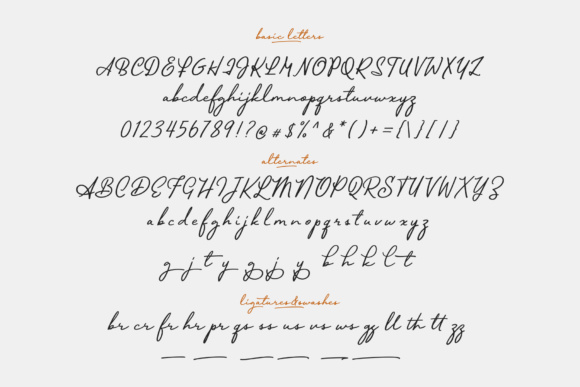 basic letters
ABCDEFGHIJKLMNOPQRSTUVWXYZ
abcdefghijklmnopqrstuvwxyz
0123456789!?@#$%^&*()+={\}[|]
alternates
ABCDEFGHIJKLMNOPQRSTUVWXYZ
abcdefghijklmnopqrstuvwxyz
g j t y g j y b h k l t
ligatures&swashes
br cr fr hr pr qs ss us vs ws gg ll th tt zz